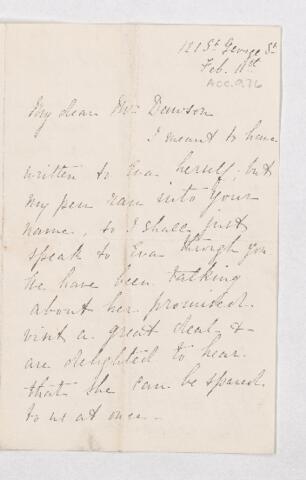 121 St. George St
Feb. 11th
ACC.976
My dear Mrs Dawson
I meant to have
written to Eva herself, but
my pen ran into your
name, so I shall just
speak to Eva through you
We have been talking
about her promised
visit a great deal &
are delighted to hear
that she can be spared
to us at once -